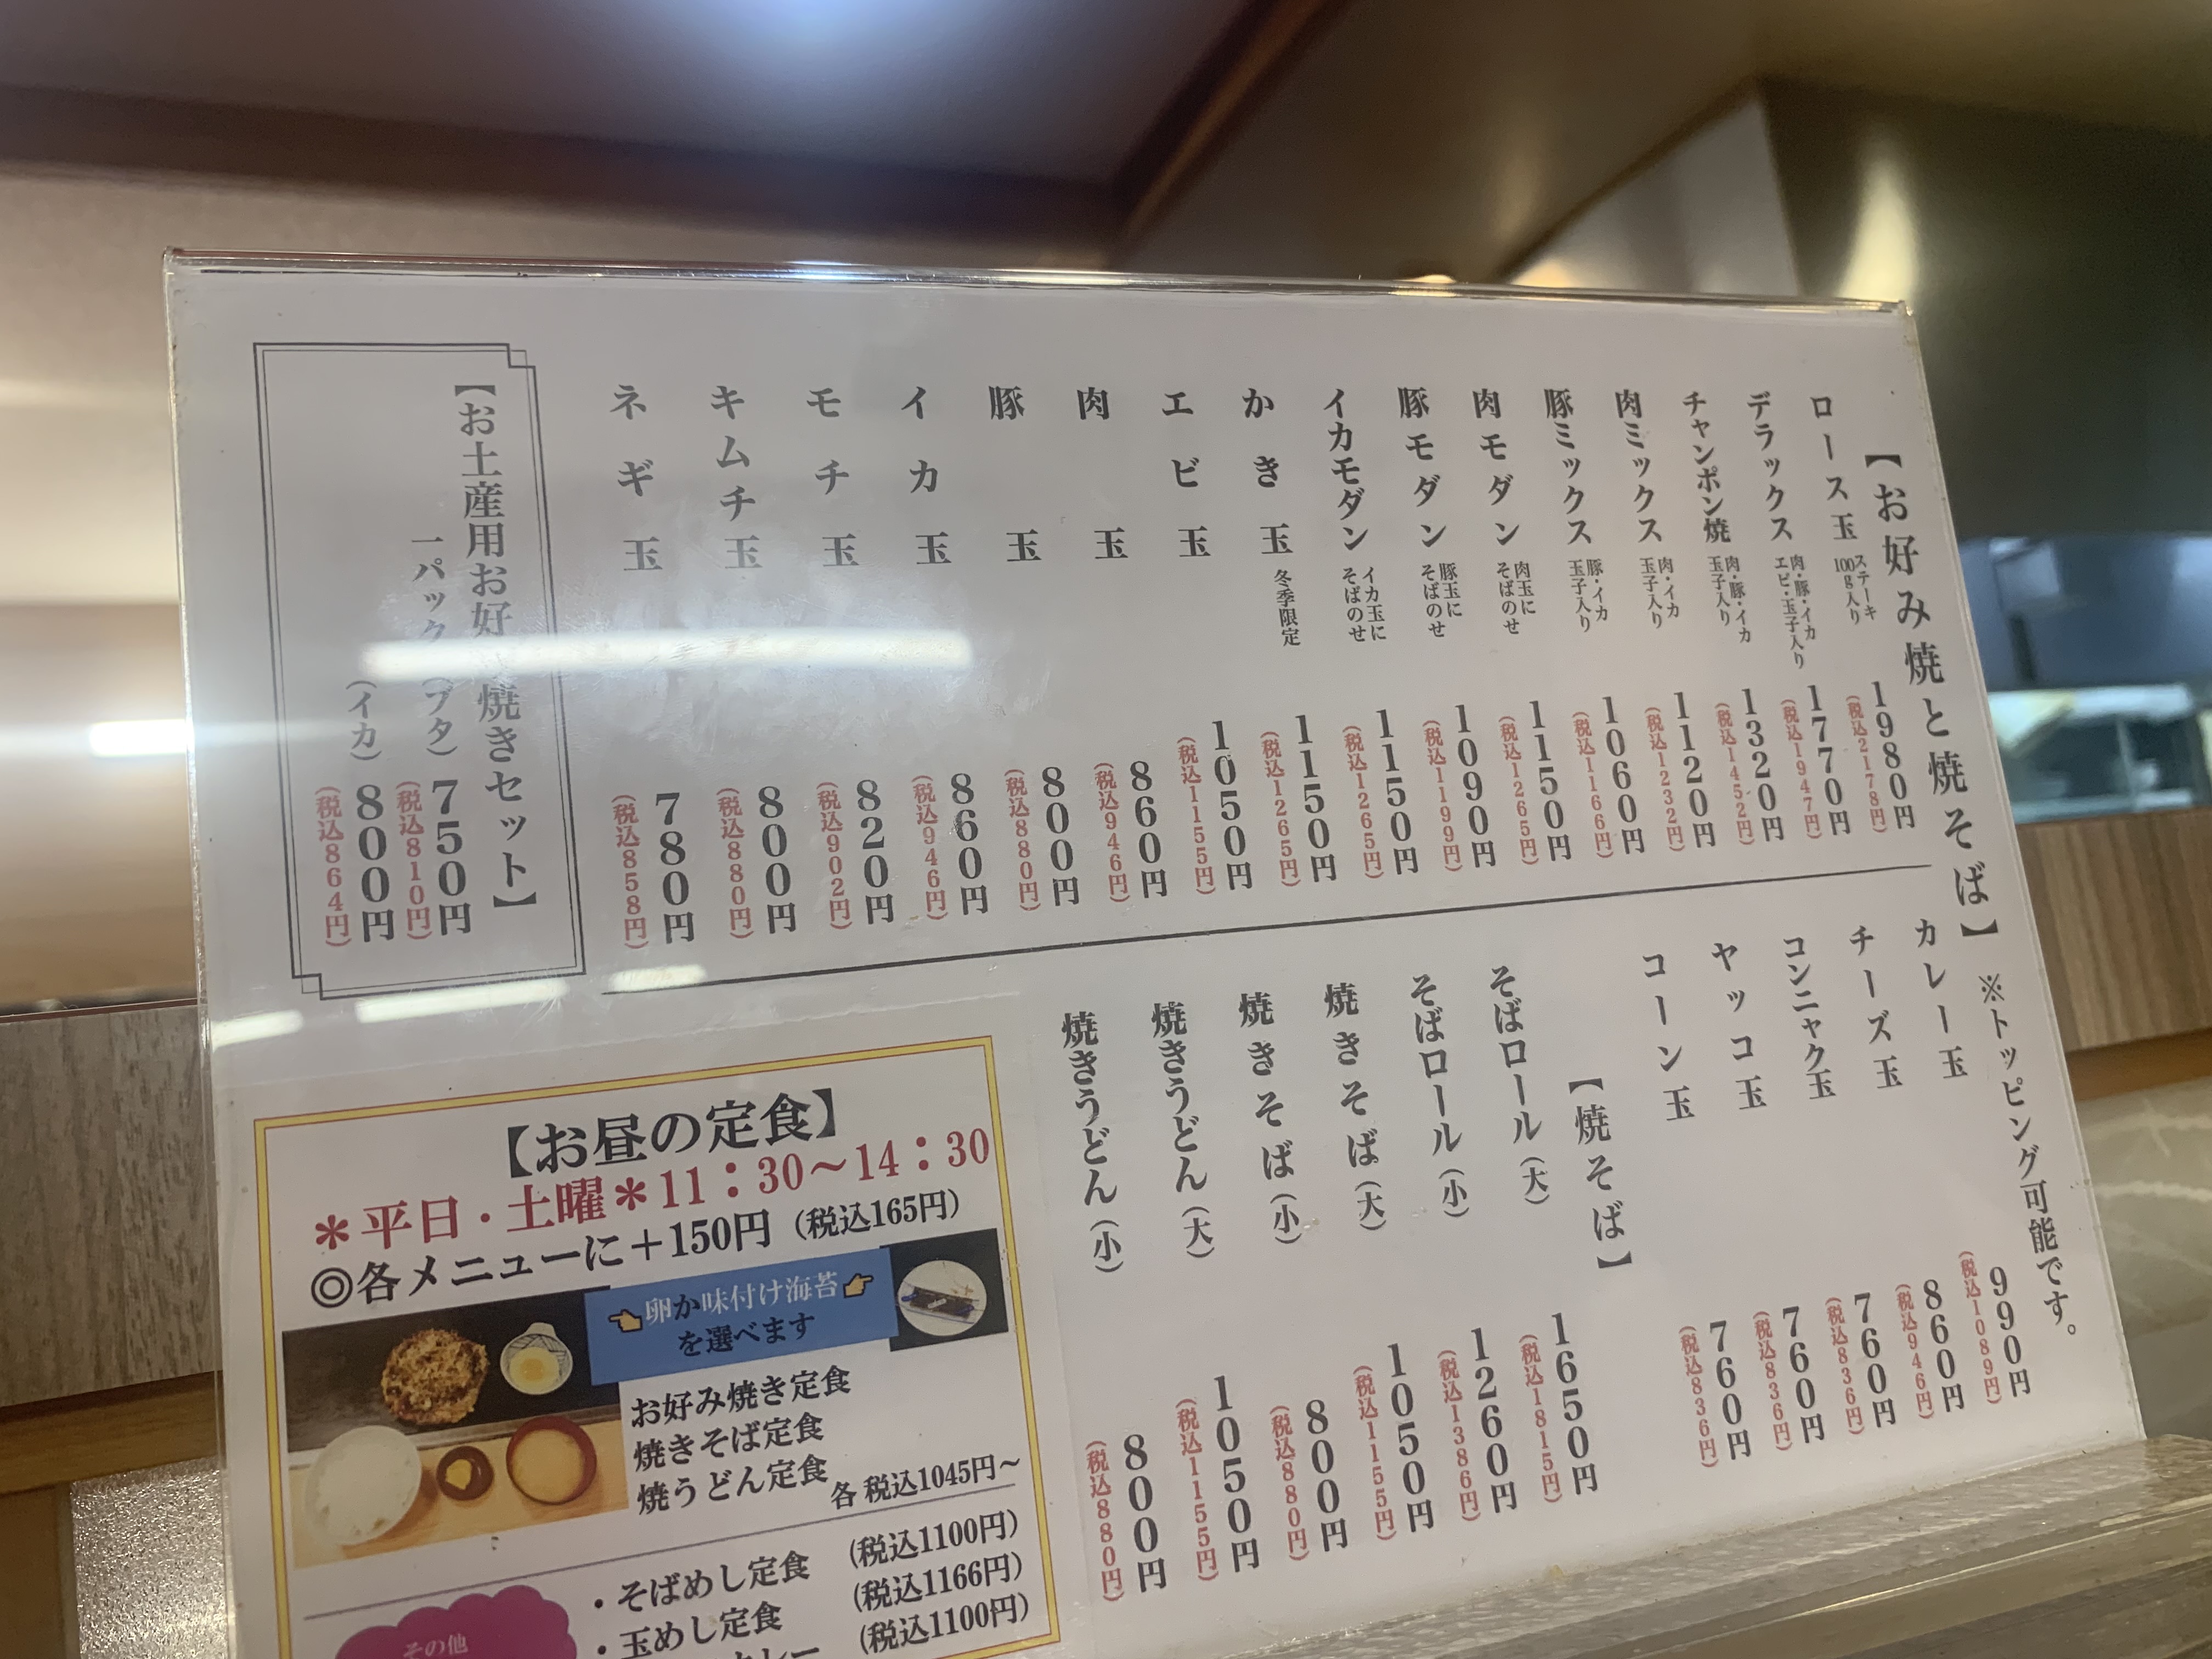 【お好み焼と焼そば】※トッピング可能です。
ロース玉 ステーキ100g入り 1980円
(税込2178円)
デラックス 肉・豚・イカ エビ・玉子入り 1770円
(税込1947円)
チャンポン焼 肉・豚・イカ 玉子入り 1320円
(税込1452円)
肉ミックス 肉・イカ 玉子入り 1120円
(税込1232円)
豚ミックス 豚・イカ 玉子入り 1060円
(税込1166円)
肉モダン 肉玉に そばのせ 1150円
(税込1265円)
豚モダン 豚玉に そばのせ 1090円
(税込1199円)
イカモダン イカ玉に そばのせ 1150円
(税込1265円)
かき玉 冬季限定 1150円
(税込1265円)
エビ玉 1050円
(税込1155円)
肉玉 860円
(税込946円)
豚玉 800円
(税込880円)
イカ玉 860円
(税込946円)
モチ玉 820円
(税込902円)
キムチ玉 800円
(税込880円)
ネギ玉 780円
(税込858円)
【お土産用お好み焼きセット】
一パック(ブタ) 750円
(税込810円)
(イカ) 800円
(税込864円)
カレー玉 990円
(税込1089円)
チーズ玉 860円
(税込946円)
コンニャク玉 760円
(税込836円)
ヤッコ玉 760円
(税込836円)
コーン玉 760円
(税込836円)
【焼そば】
そばロール(大) 1650円
(税込1815円)
そばロール(小) 1260円
(税込1386円)
焼きそば(大) 1050円
(税込1155円)
焼きそば(小) 800円
(税込880円)
焼きうどん(大) 1050円
(税込1155円)
焼きうどん(小) 800円
(税込880円)
【お昼の定食】
＊平日・土曜＊11：30～14：30
◎各メニューに＋150円 (税込165円)
卵か味付け海苔
を選べます
お好み焼き定食
焼きそば定食
焼うどん定食
各 税込1045円～
その他
・そばめし定食 (税込1100円)
・玉めし定食 (税込1166円)
カレー (税込1100円)